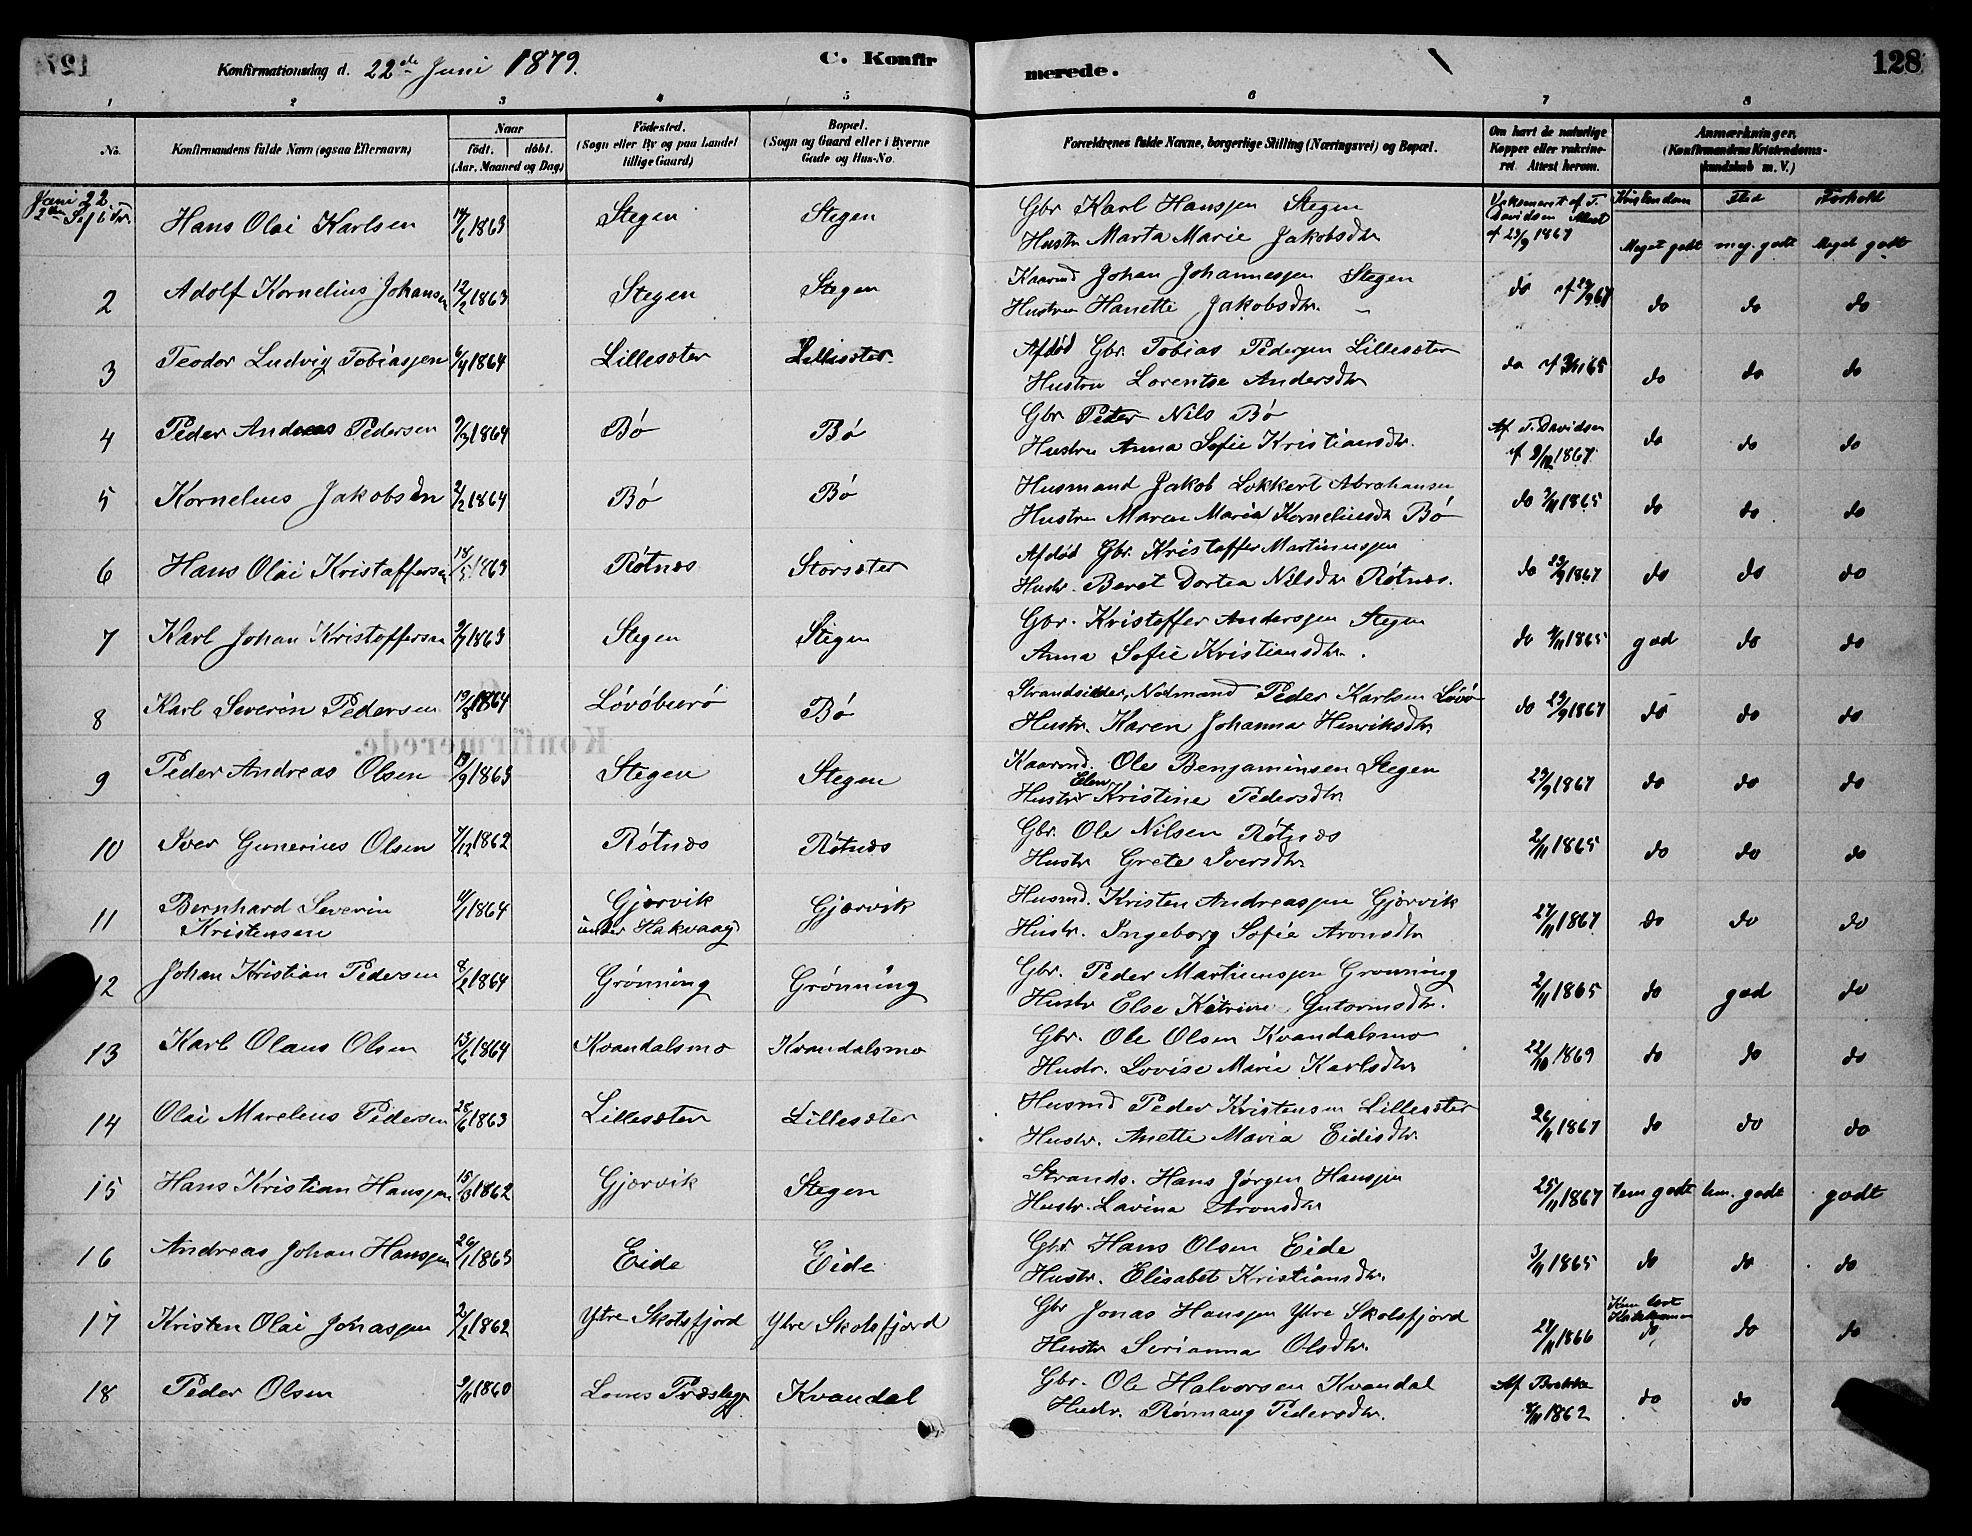 Konfirmationsdag d. 22de Juni 1879.
C. Konfirmerede.
128
1 2 3 4 5 6 7 8
No.
Konfirmandens fulde Navn (ogsaa Efternavn)
Naar
födt. döbt.
(Aar, Maaned og Dag)
Födested.
(Sogn eller By og paa Landet
tillige Gaard)
Bopæl.
(Sogn og Gaard eller i Byerne
Gade og Hus-No.
Forældrenes fulde Navne, borgerlige Stilling (Næringsvei) og Bopæl.
Om havt de naturlige
Kopper eller vakcine-
ret. Attest herom.
Anmærkninger.
(Konfirmandens Kristendoms-
kundskab m. V.)
Juni 22
Hans Olai Karlsen 1863 Stegen Stegen
Gbr Karl Hansjen Stegen
Hustr Marta Marie Jakobsdtr
Davidsen Attest
af 23/9 1867
Kristendom Flid Forhold
Meget godt meg. godt Meget godt
2 Adolf Kornelius Johansen 12/2 1863 Stegen Stegen
Kaarmd Johan Johannesjen Stegen
Hustru Hanette Jakobsdtr.
do do do do
3 Teodor Ludvig Tobiasjen 1864 Lillesæter Lillesæter
Afdød Gbr. Tobias Pedersen Lillesæter
Hustru Lorentse Andersdtr
do do do do
4 Peder Andreas Pedersen 1864 Bø Bø
Gbr Peder Nils Bø
Hustru Anna Sofie Kristiansdtr.
Af T. Davidsen
1867
do do do
5 Kornelius Jakobsen 2/2 1864 Bø Bø
Husmand Jakob Lokkert Abrahamsen
Hustru Maren Maria Kornelíusdtr Bø
do 1865 do do do
6 Hans Olai Kristoffersen 1863 Røtnæs Storsæter
Afdød Gbr. Kristoffer Martinussjen
Hustr. Beret Dortea Nilsdtr Røtnæs.
do 23/9 1867 do do do
7 Karl Johan Kristoffersen 1863 Stegen Stegen
Gbr. Kristoffer Andersjen Stegen
Anna Sofie Kristiansdtr.
do 1865 god do do
8 Karl Severin Pedersen 19/8 1864 Løvøburø Bø
Strandsidder, Nødmand Peder Karlsen Løvø
Hustr. Karen Johanna Henriksdtr
do 23/9 1867 do do do
9 Peder Andreas Olsen 1863 Stegen Stegen
Kaarmd. Ole Benjaminsen Stegen
Hustr Elen Kristine Pedersdtr
23/9 1867 do do do
10 Iver Gunerius Olsen 7/12 1862 Røtnæs Røtnæs
Gbr. Ole Nilsen Røtnæs
Hustr Grete Iversdtr
2/11 1865 do do do
11 Bernhard Severin
Kristensen 1864
Gjærvik
under Hakvaag Gjærvik
Husmd. Kristen Andreasjen Gjærvik
Hustr. Ingeborg Sofie Aronsdtr
27/11 1867 do do do
12 Johan Kristian Pedersen 8/2 1864 Grønning Grønning
Gbr. Peder Martinussjen Grønning
Hustr Else Katrine Gutormsdtr.
2/11 1865 do god do
13 Karl Olaus Olsen 13/6 1864 Kvandalsmo Kvandalsmo
Gbr. Ole Olsen Kvandalsmo
Hustr. Lovise Marie Karlsdtr
22/10 1869 do do do
14 Olai Marelius Pedersen 28/6 1863 Lillesæter Lillesæter
Husmd Peder Kristensen Lillesæter
Hustr. Anette Maria Eidisdtr
26/11 1867 do do do
15 Hans Kristian Hansjen 15/3 1862 Gjærvik Stegen
Strands. Hans Jørgen Hansjen
Hustr. Lavina Aronsdtr
25/11 1867 tem godt tem. godt godt
16 Andreas Johan Hansjen 26/1 1863 Eide Eide
Gbr Hans Olsen Eide
Hustr. Elisabet Kristiansdtr.
3/11 1865 do do do
17 Kristen Olai Johasjen 1862 Ytre Skotsfjord Ytre Skotsfjord
Gbr Jonas Hansjen Ytre Skotsfjord
Hustr Serianna Olsdtr.
1866
do do do
18 Peder Olsen 1860 Lomes Præstegj Kvandal
Gbr. Ole Halvorsen Kvandal
Hustr. Rønnaug Pedersdtr.
1862 do do